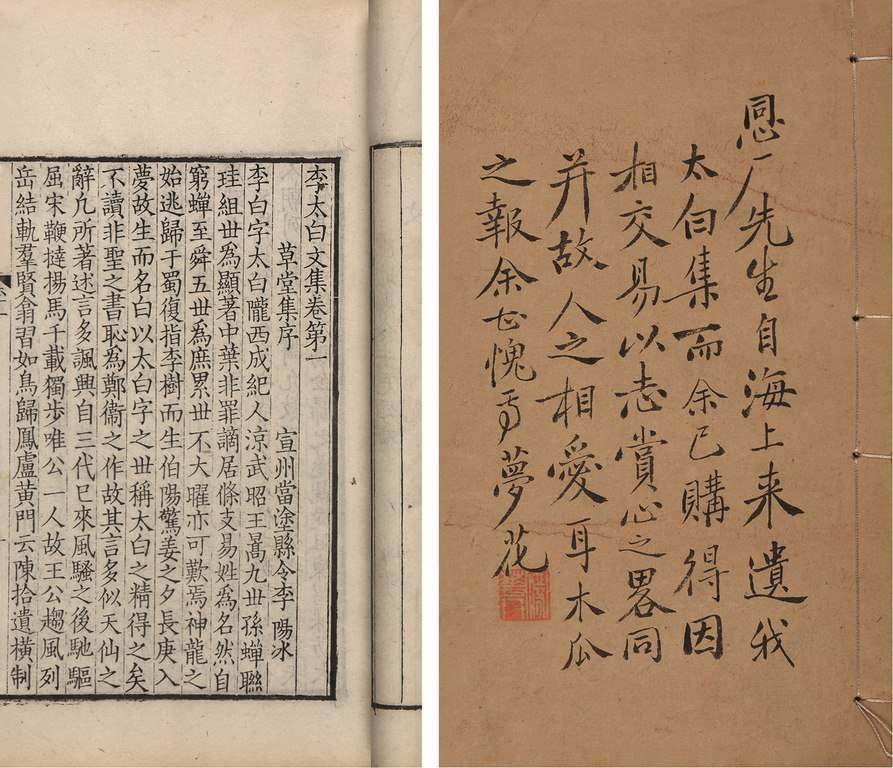 李太白文集卷第一
草堂集序　宣州當塗縣令李陽冰
李白字太白隴西成紀人涼武昭王暠九世孫蟬聯
珪組世爲顯著中葉非罪謫居條支易姓爲名然自
窮蟬至舜五世爲庶累世不大曜亦可歎焉神龍之
始逃歸于蜀復指李樹而生伯陽驚姜之夕長庚入
夢故生而名白以太白字之世稱太白之精得之矣
不讀非聖之書恥爲鄭衞之作故其言多似天仙之
辭凡所著述言多諷興自三代已來風騷之後馳驅
屈宋鞭撻揚馬千載獨步唯公一人故王公趨風列
岳結軌羣賢翕習如鳥歸鳳盧黃門云陳拾遺橫制
厂先生自海上来遺我
太白集而余已購得因
相交易以志賞心之畧同
并故人之相愛耳木瓜
之報余甚愧焉夢花